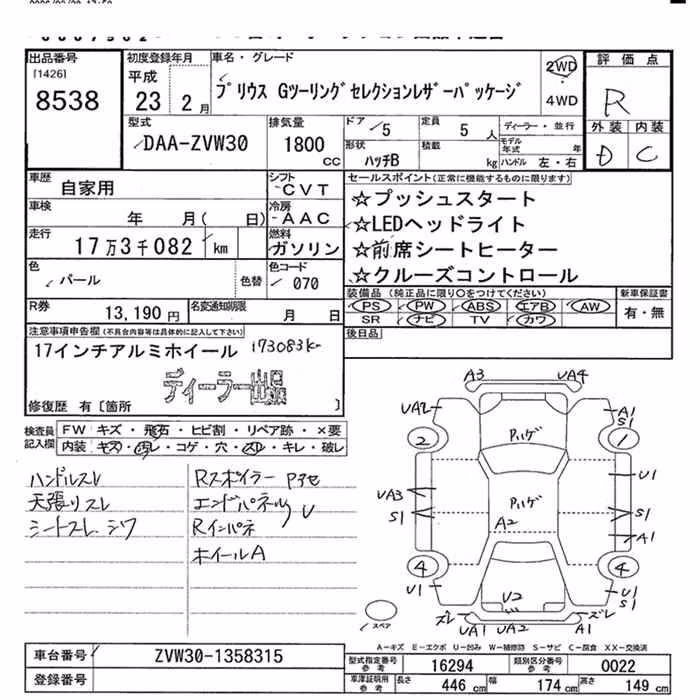 出品番号
[1426]
8538
初度登録年月
平成
23 2 月
車名・グレード
プリウス Gツーリングセレクションレザーパッケージ
2WD
4WD
評価点
R
外装 内装
D C
型式
DAA-ZVW30
排気量
1800
CC
ドア
5
定員
5 人
ディーラー・並行
形状
ハッチB
積載
kg
モデル年式 年
ハンドル 左・右
車歴
自家用
シフト
CVT
車検
年 月( 日)
冷房
AAC
走行
17万3千082 km
燃料
ガソリン
色
パール
色替
色コード
070
R券
13,190 円
名変通知期限
月 日
セールスポイント(正常に機能するものに限ります)
☆プッシュスタート
☆LEDヘッドライト
☆前席シートヒーター
☆クルーズコントロール
装備品 (純正品に限り○をつけてください)
PS PW ABS エアB AW
SR ナビ TV カワ
新車保証書
有・無
後日品
注意事項申告欄(不具合内容等は具体的に記入して下さい)
17インチアルミホイール 173083km
ディーラー出品
修復歴 有〔箇所 〕
検査員記入欄
FW キズ・飛石・ヒビ割・リペア跡・×要
内装 キズ・汚レ・コゲ・穴・スレ・キレ・破レ
ハンドルスレ
天張リスレ
シートスレ、シワ
Rスポイラー Pアセ
エンドパネル U
Rインパネ
ホイールA
A3 UA4
UA2 A1
S1
2 1
ハゲ
UA3 U1
S1 ハゲ S1
A2 A1
4 4
U1 U1
S1
U2
スペア
ズレ ズレ
UA1 UA2 A1
A-キズ E-エクボ U-凹み W-補修跡 S-サビ C-腐食 XX-交換済
車台番号
ZVW30-1358315
登録番号
型式指定番号 参考
16294
類別区分番号 参考
0022
車庫証明用 参考
長さ 446 cm 幅 174 cm 高さ 149 cm